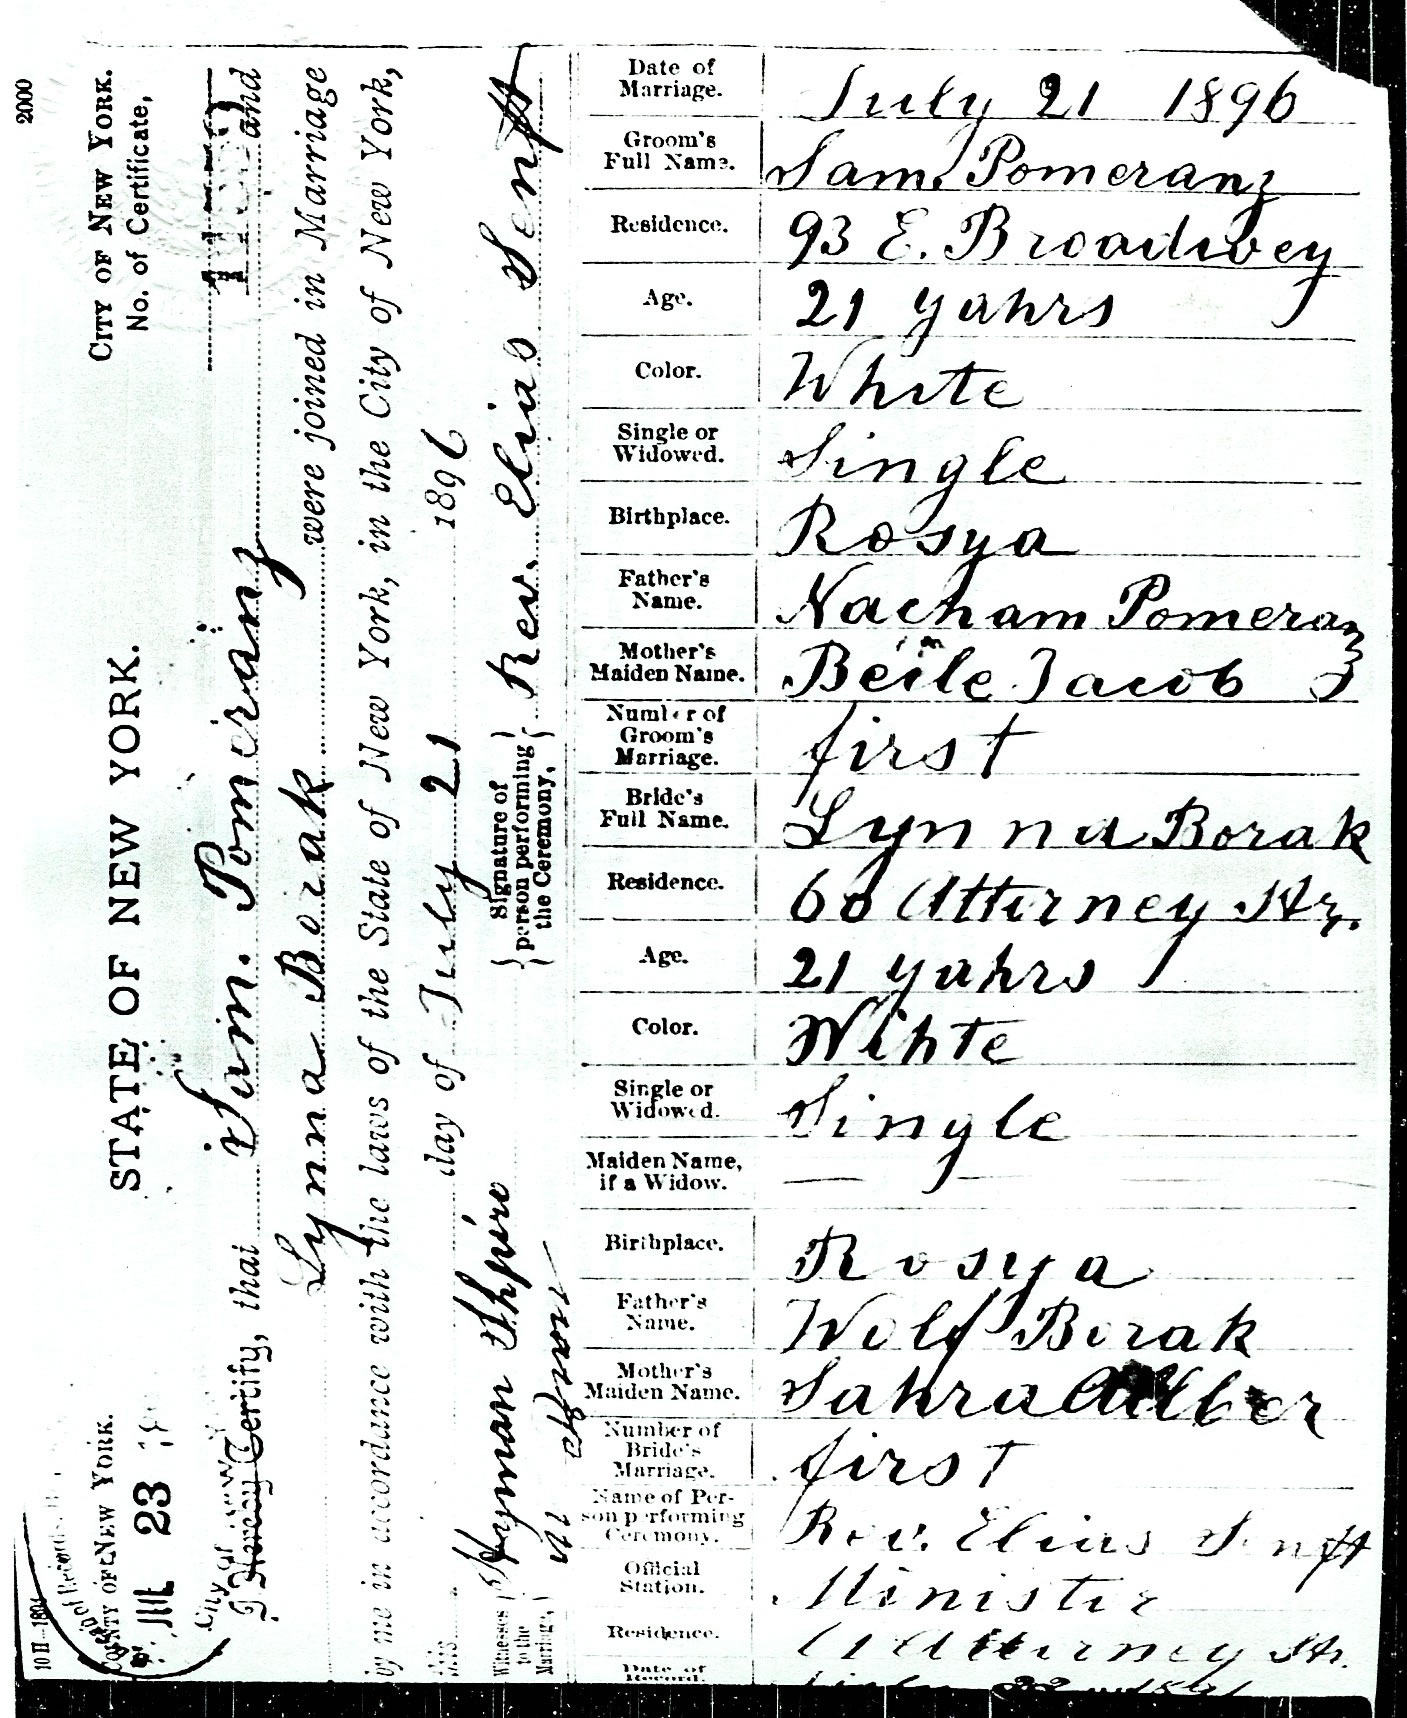 2000
STATE OF NEW YORK.
COUNTY OF NEW YORK.
CITY OF NEW YORK.
No. of Certificate,
JUL 23
I Hereby Certify, that Sam. Pomeranz and
Lynna Borak were joined in Marriage
by me in accordance with the laws of the State of New York, in the City of New York,
this day of July 21 1896
Witnesses to the Marriage,
Hyman Shpiro
Signature of person performing the Ceremony,
Rev. Elias Senft
Date of Marriage. July 21 1896
Groom's Full Name. Sam. Pomeranz
Residence. 93 E. Broadwey
Age. 21 yahrs
Color. White
Single or Widowed. Single
Birthplace. Rosya
Father's Name. Nacham Pomeranz
Mother's Maiden Name. Beile Jacob
Number of Groom's Marriage. first
Bride's Full Name. Lynna Borak
Residence. 60 Atterney Str.
Age. 21 yahrs
Color. Wihte
Single or Widowed. Single
Maiden Name, if a Widow. — —
Birthplace. Rosya
Father's Name. Wolf Borak
Mother's Maiden Name. Sahra
Number of Bride's Marriage. first
Name of Person performing Ceremony. Rev. Elias Senft
Official Station. Minister
Residence. Atterney Str.
Date of Record.